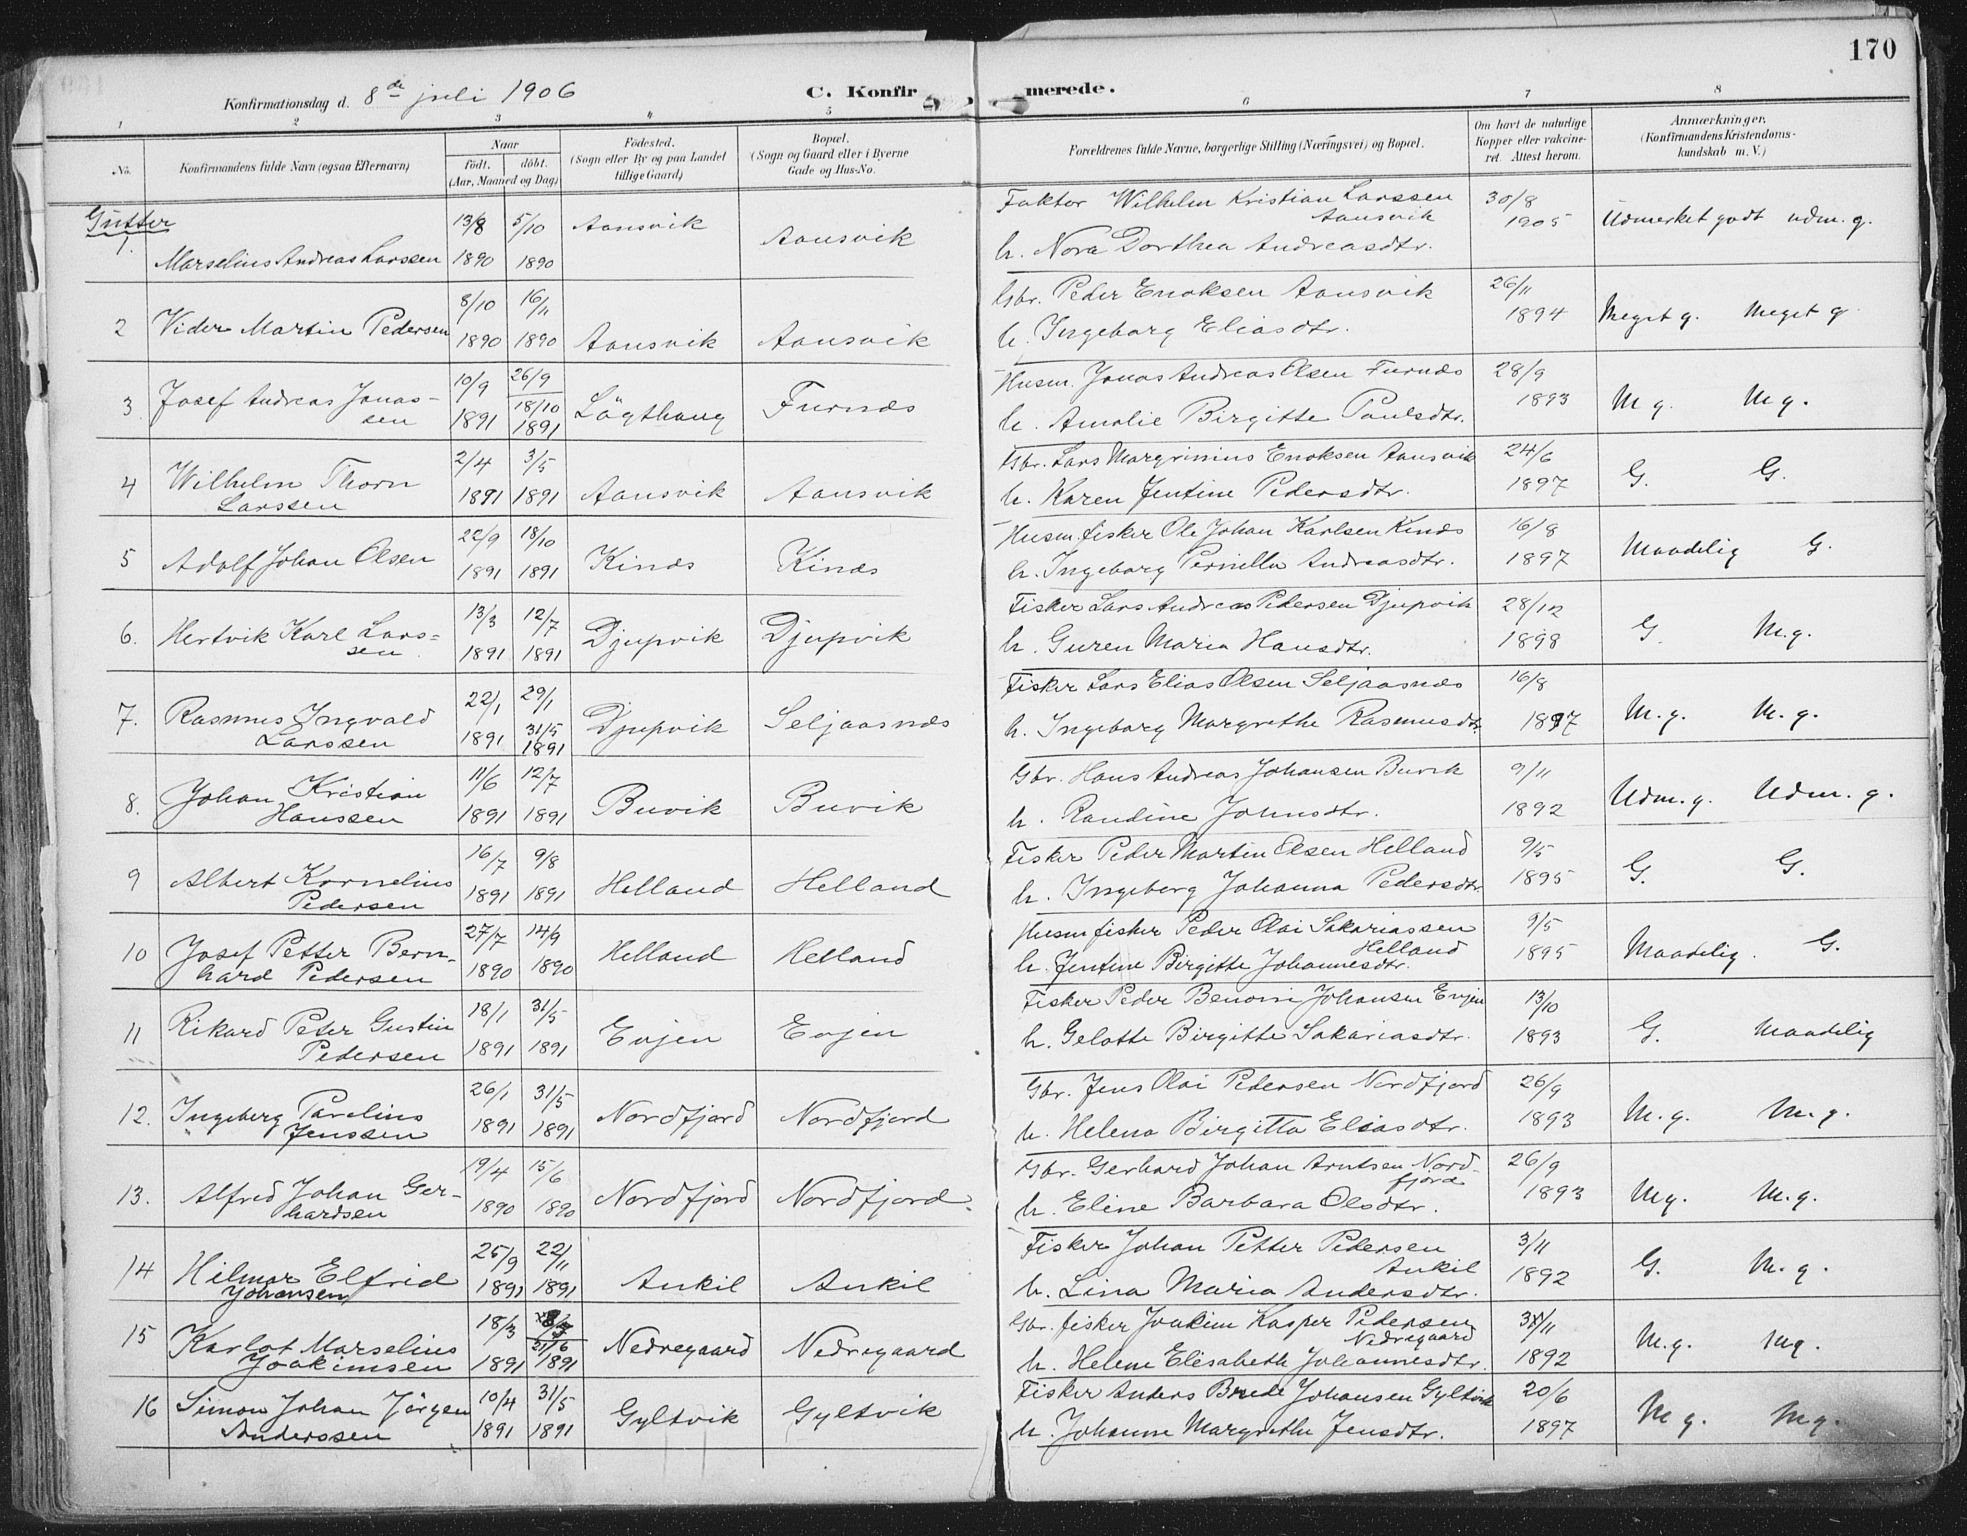 170
Konfirmationsdag d. 8de juli 1906 C. Konfirmerede.
1 2 3 4 5 6 7 8
No. Konfirmandens fulde Navn (ogsaa Efternavn) Naar født. døbt. (Aar, Maaned og Dag) Fødested. (Sogn eller By og paa Landet tillige Gaard) Bopæl. (Sogn og Gaard eller i Byerne Gade og Hus-No. Forældrenes fulde Navne, borgerlige Stilling (Næringsvei) og Bopæl. Om havt de naturlige Kopper eller vakcineret. Attest herom. Anmærkninger. (Konfirmandens Kristendomskundskab m. V.)
Gutter
1. Marselius Andreas Larssen 13/8 1890 5/10 1890 Aansvik Aansvik Faktor Wilhelm Kristian Larssen Aansvik 30/8 1905 Udmerket godt udm. g.
h. Nora Dorthea Andreasdtr.
2 Vider Martin Pedersen 8/10 1890 16/11 1890 Aansvik Aansvik Gbr. Peder Enoksen Aansvik 26/11 1894 Meget g. Meget g
h. Ingeborg Eliasdtr.
3 Josef Andreas Jonassen 10/9 1891 26/9 18/10 1891 Lögthaug Furnæs Husm. Jonas Andreas Olsen Furnæs 28/9 1893 M g. M g.
h. Amalie Birgitte Paulsdtr.
4 Wilhelm Thorn Larssen 2/4 1891 3/5 1891 Aansvik Aansvik Gbr. Lars Margrinius Enoksen Aansvik 24/6 1897 G. G.
h. Karen Jentine Pedersdtr.
5 Adolf Johan Olsen 22/9 1891 18/10 1891 Kinæs Kinæs Husm fisker Ole Johan Karlsen Kinæs 16/8 1897 Maadelig G.
h. Ingeborg Pernilla Andreasdtr.
6. Hertvik Karl Larssen 13/3 1891 12/7 1891 Djupvik Djupvik Fisker Lars Andreas Pedersen Djupvik 28/12 1898 G. M.g.
h. Guren Maria Hansdtr.
7. Rasmus Ingvald Larssen 22/1 1891 29/1 31/5 1891 Djupvik Seljaasnæs Fisker Lars Elias Olsen Seljaasnæs 16/8 1897 M.g. M.g.
h. Ingeborg Margrethe Rasmusdtr.
8. Johan Kristian Hanssen 11/6 1891 12/7 1891 Buvik Buvik Gbr. Hans Andreas Johansen Buvik 9/11 1892 Udm.g. Udm.g.
h. Randine Johnsdtr.
9 Albert Kornelius Pedersen 16/7 1891 9/8 1891 Helland Helland Fisker Peder Martin Olsen Helland 9/5 1895 G. G.
h. Ingeberg Johanna Pedersdtr
10 Josef Petter Bernhard Pedersen 27/7 1890 14/9 1890 Helland Helland Husm fisker Peder Olai Sakariassen Helland 9/5 1895 Maadelig. G.
h. Jentine Birgitte Johannesdtr.
11 Rikard Peter Gustin Pedersen 18/1 1891 31/5 1891 Evjen Evjen Fisker Peder Benoni Johansen Evjen 13/10 1893 G. Maadelig
h. Gelotte Birgitte Sakariasdtr.
12. Ingeberg Parelius Jenssen 26/1 1891 31/5 1891 Nordfjord Nordfjord Gbr. Jens Olai Pedersen Nordfjord 26/9 1893 M.g. M.g.
h. Helena Birgitta Eliasdtr.
13. Alfred Johan Gerhardsen 19/4 1890 15/6 1890 Nordfjord Nordfjord Gbr. Gerhard Johan Arntsen Nordfjord 26/9 1893 Mg. M.g.
h. Eline Barbara Olsdtr.
14 Hilmar Elfrid Johansen 25/9 1891 22/11 1891 Ankil Ankil Fisker Johan Petter Pedersen Ankil 3/11 1892 G. M.g.
h. Lina Maria Andersdtr.
15 Karlot Marselius Joakimsen 18/3 1891 21/6 1891 Nedregaard Nedregaard Gbr. fisker Joakim Kasper Pedersen Nedregaard 3/11 1892 M.g. Mg.
h. Helene Elisabeth Johannesdtr.
16 Simon Johan Jörgen Anderssen 10/4 1891 31/5 1891 Gyltvik Gyltvik Fisker Anders Brede Johansen Gyltvik 20/6 1897 M g. Mg.
h. Johanne Margrethe Jensdtr.